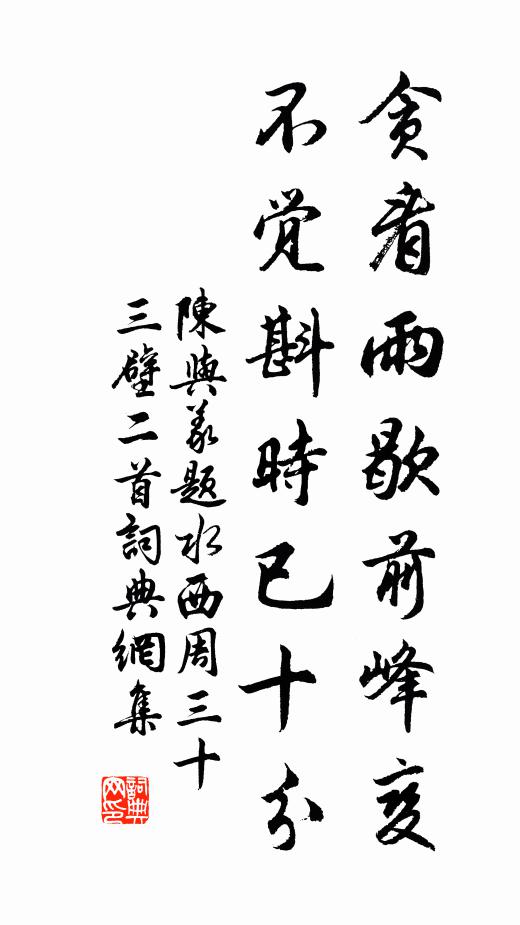 贪看雨歇前峰变
不觉斟時已十分
陳與義題水西周三十
三壁二首詞典網集
詞典网印